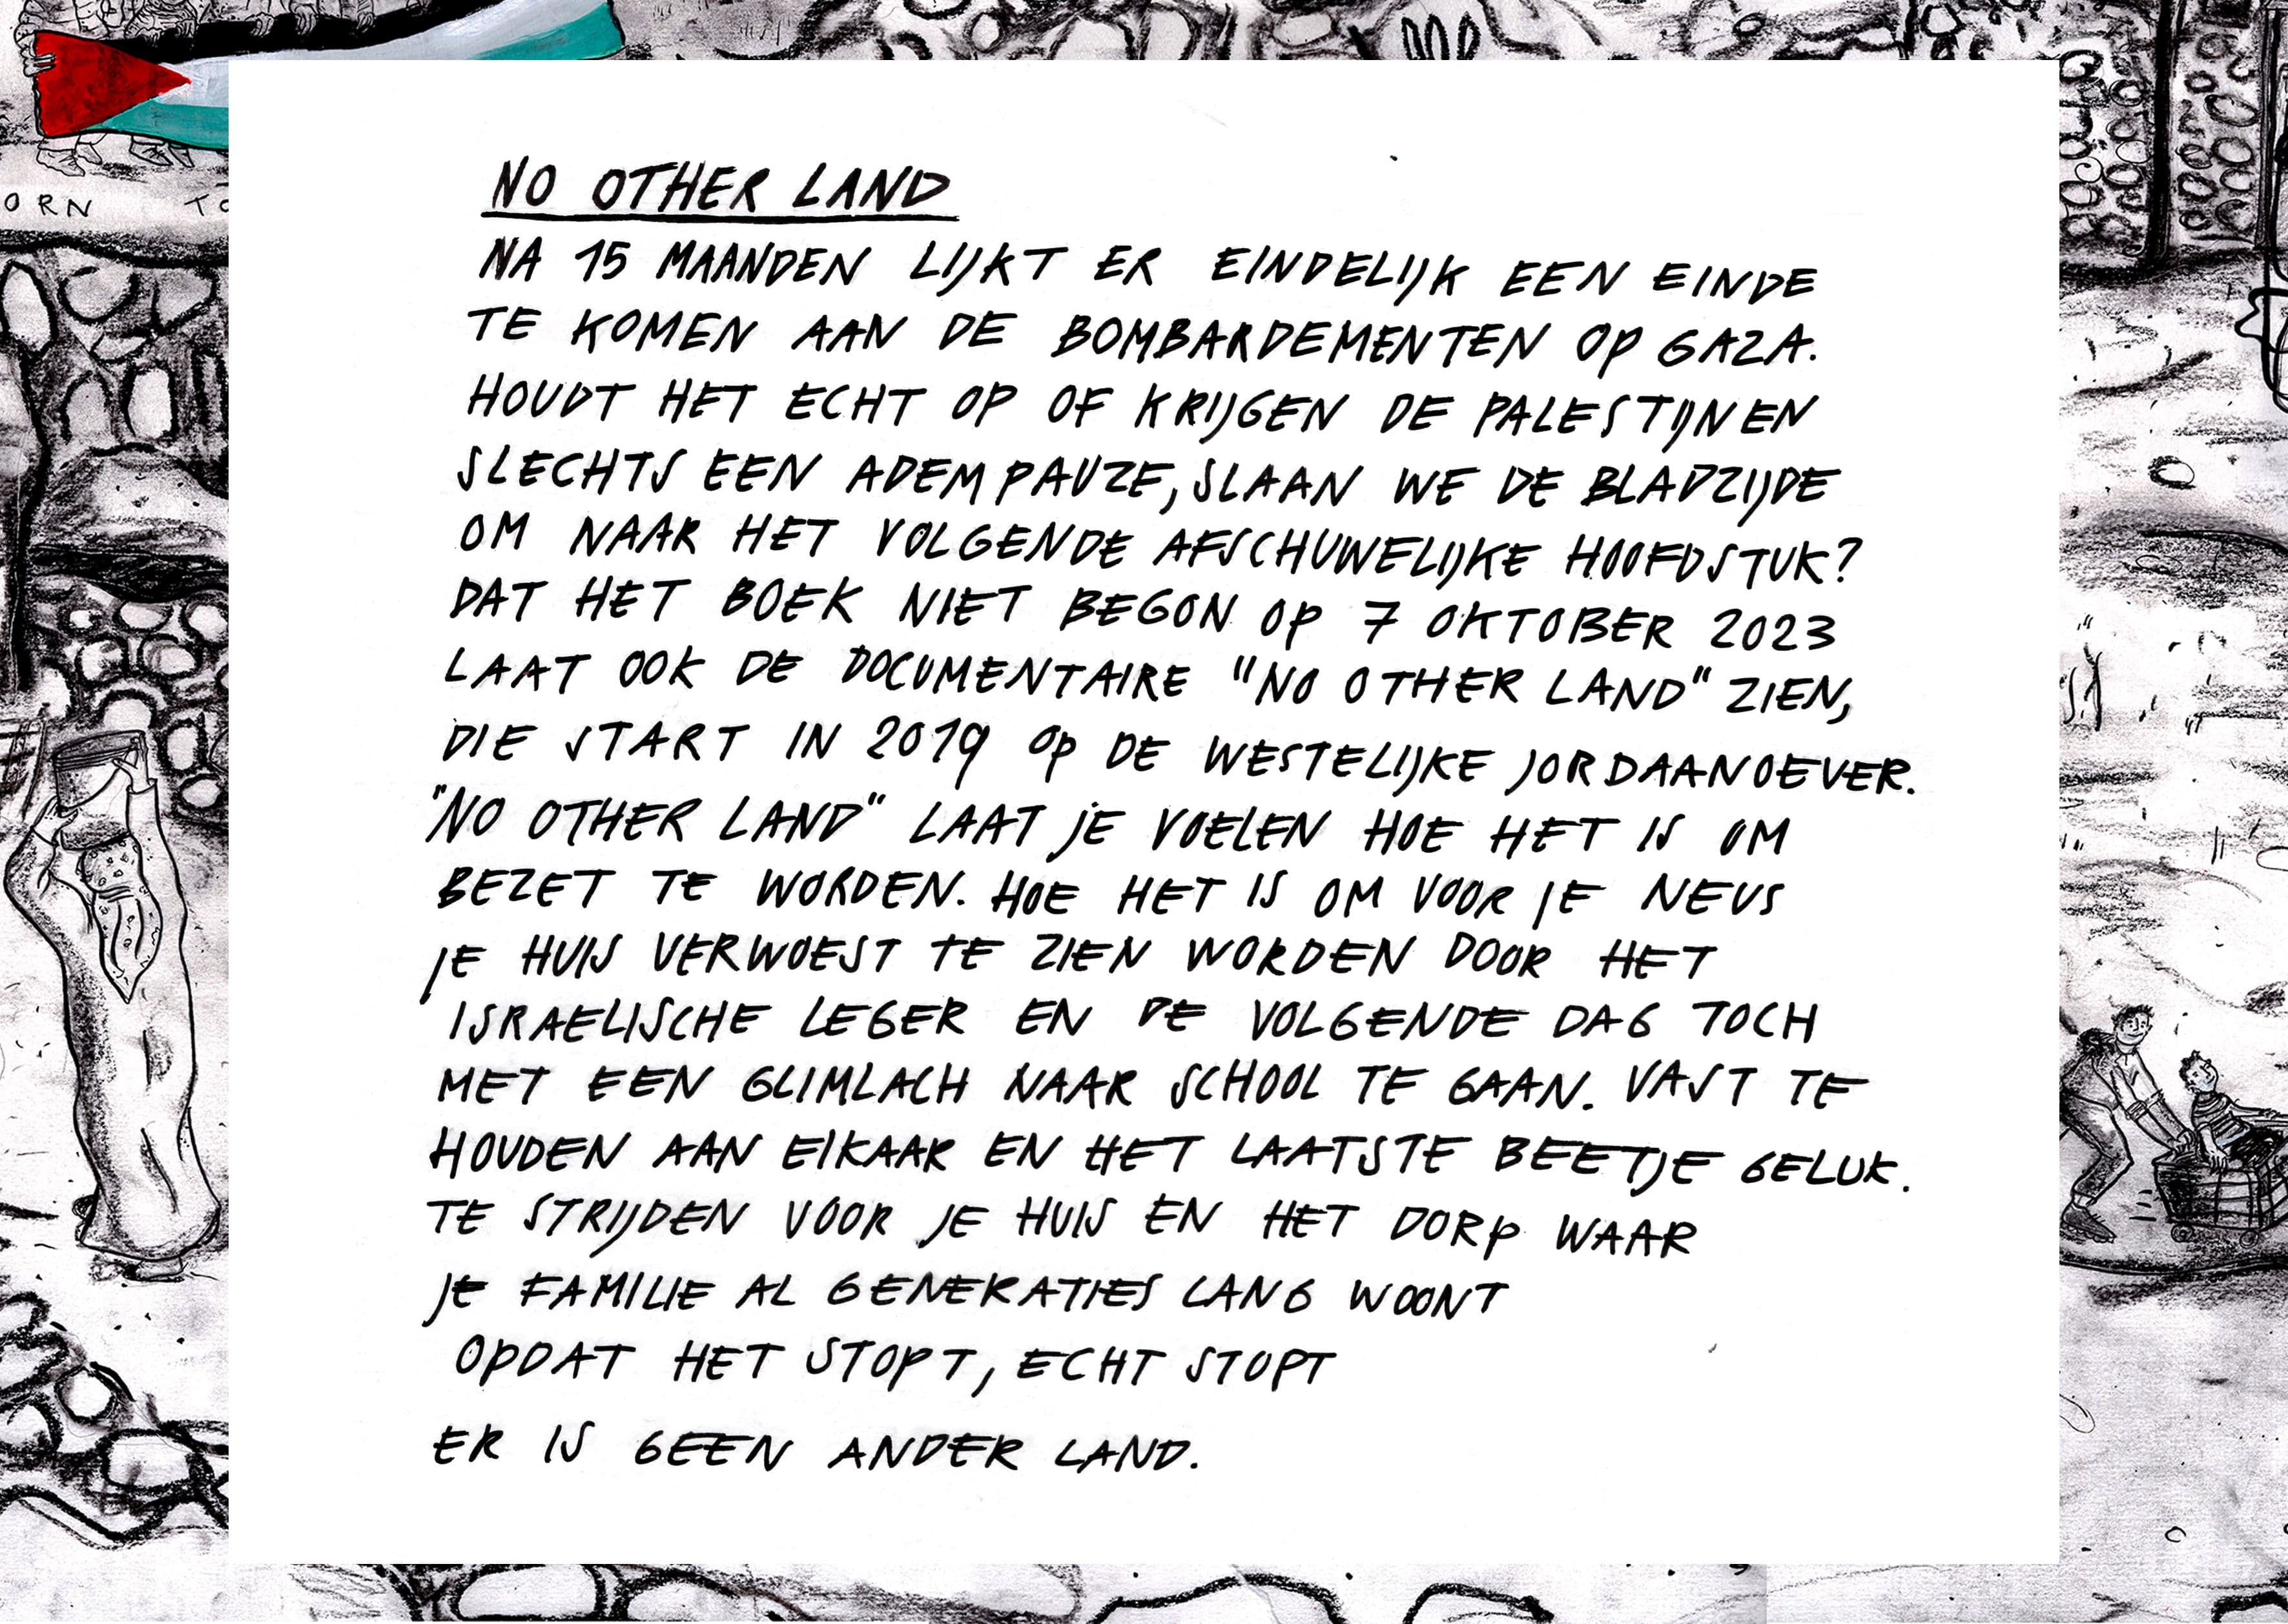 ORN
NO OTHER LAND
NA 15 MAANDEN LIJKT ER EINDELIJK EEN EINDE
TE KOMEN AAN DE BOMBARDEMENTEN OP GAZA.
HOUDT HET ECHT OP OF KRIJGEN DE PALESTIJNEN
SLECHTS EEN ADEMPAUZE, SLAAN WE DE BLADZIJDE
OM NAAR HET VOLGENDE AFSCHUWELIJKE HOOFDSTUK?
DAT HET BOEK NIET BEGON OP 7 OKTOBER 2023
LAAT OOK DE DOCUMENTAIRE "NO OTHER LAND" ZIEN,
DIE START IN 2019 OP DE WESTELIJKE JORDAANOEVER.
"NO OTHER LAND" LAAT JE VOELEN HOE HET IS OM
BEZET TE WORDEN. HOE HET IS OM VOOR JE NEUS
JE HUIS VERWOEST TE ZIEN WORDEN DOOR HET
ISRAELISCHE LEGER EN DE VOLGENDE DAG TOCH
MET EEN GLIMLACH NAAR SCHOOL TE GAAN. VAST TE
HOUDEN AAN ElKAAR EN HET LAATSTE BEETJE GELUK.
TE STRIJDEN VOOR JE HUIS EN HET DORP WAAR
JE FAMILIE AL GENERATIES LANG WOONT
OPDAT HET STOPT, ECHT STOPT
ER IS GEEN ANDER LAND.